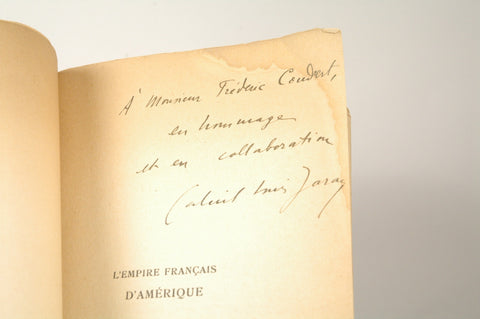 À Monsieur Fréderic Coudert,
en hommage
et en collaboration
Gabriel Louis Jaray
L'EMPIRE FRANÇAIS
D'AMÉRIQUE